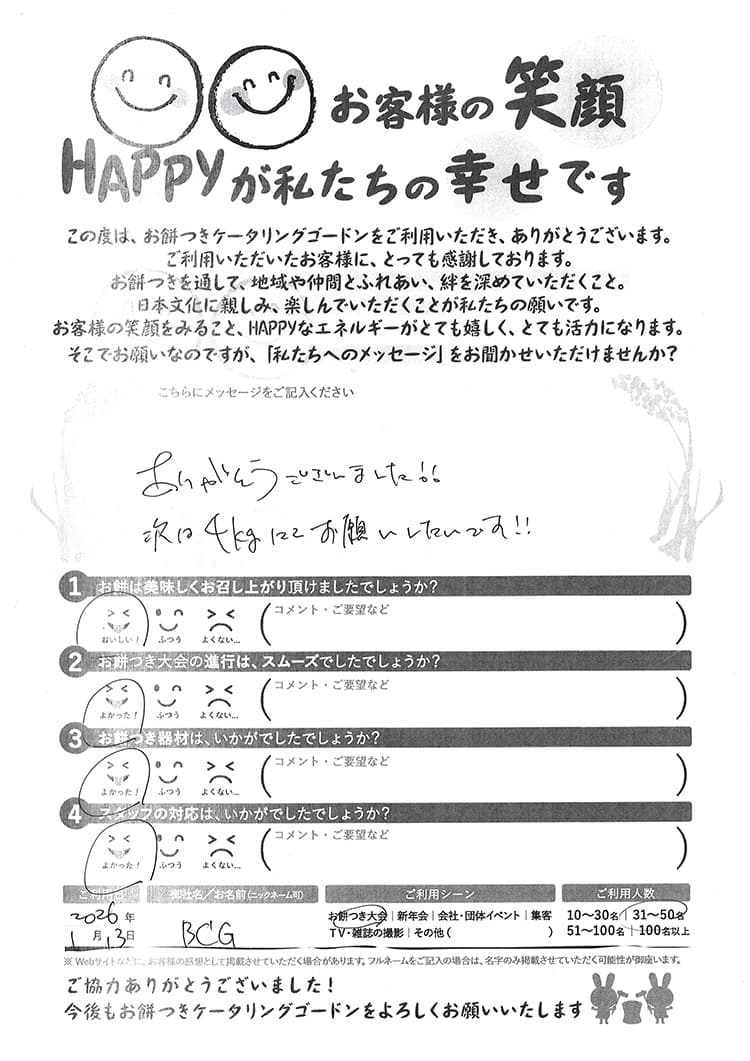 お客様の笑顔
HAPPYが私たちの幸せです
この度は、お餅つきケータリングゴードンをご利用いただき、ありがとうございます。
ご利用いただいたお客様に、とっても感謝しております。
お餅つきを通して、地域や仲間とふれあい、絆を深めていただくこと。
日本文化に親しみ、楽しんでいただくことが私たちの願いです。
お客様の笑顔をみること、HAPPYなエネルギーがとても嬉しく、とても活力になります。
そこでお願いなのですが、「私たちへのメッセージ」をお聞かせいただけませんか?
こちらにメッセージをご記入ください
ありがとうございました!!
次は4kgにてお願いしたいです!!
1 お餅は美味しくお召し上がり頂けましたでしょうか?
おいしい! ふつう よくない… (コメント・ご要望など )
2 お餅つき大会の進行は、スムーズでしたでしょうか?
よかった! ふつう よくない… (コメント・ご要望など )
3 お餅つき器材は、いかがでしたでしょうか?
よかった! ふつう よくない… (コメント・ご要望など )
4 スタッフの対応は、いかがでしたでしょうか?
よかった! ふつう よくない… (コメント・ご要望など )
ご利用日 御社名/お名前(ニックネーム可) ご利用シーン ご利用人数
2026年 お餅つき大会|新年会|会社・団体イベント|集客 10〜30名|31〜50名
1月13日 BCG TV・雑誌の撮影|その他( ) 51〜100名|100名以上
※ Webサイトなどに、お客様の感想として掲載させていただく場合があります。フルネームをご記入の場合は、名字のみ掲載させていただく可能性が御座います。
ご協力ありがとうございました!
今後もお餅つきケータリングゴードンをよろしくお願いいたします